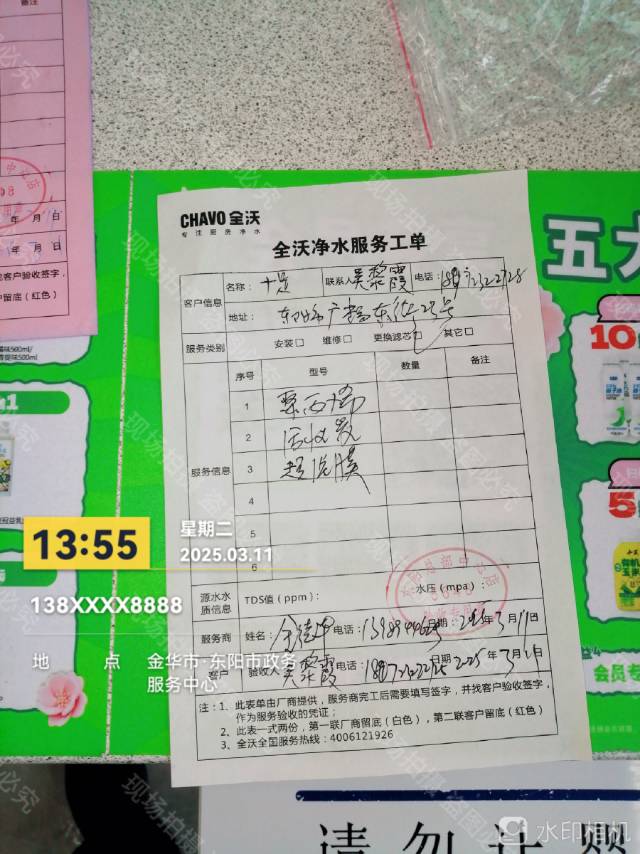 CHAVO 全沃
专注服务净水
全沃净水服务工单
客户信息
名称：十足 联系人 吴黎霞 电话：
地址：
服务类别 安装□ 维修□ 更换滤芯□ 其它□
服务信息
序号 型号 数量 备注
1 聚丙烯
2 活性炭
3 超滤膜
4
5
6
源水水质信息 TDS值（ppm）： 水压（mpa）：
服务商 姓名： 电话： 日期：2025年3月11日
客户 验收人 吴黎霞 电话： 日期 2025年3月11
注：1、此表单由厂商提供，服务商完工后需要填写签字，并找客户验收签字，
作为服务验收的凭证；
2、此表一式两份，第一联厂商留底（白色），第二联客户留底（红色）
3、全沃全国服务热线：4006121926
13:55
星期二
2025.03.11
138XXXX8888
地 点 金华市·东阳市政务
服务中心
年 月 日
年 月 日
客户验收签字，
户留底（红色）
五大
10
5
会员专
请勿让婴
水印相机